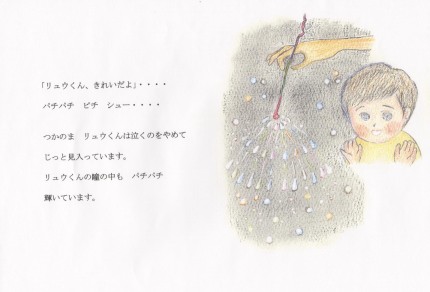 「リュウくん、きれいだよ」・・・・
パチパチ　ピチ　シュー・・・・
つかのま　リュウくんは泣くのをやめて
じっと見入っています。
リュウくんの瞳の中も　パチパチ
輝いています。